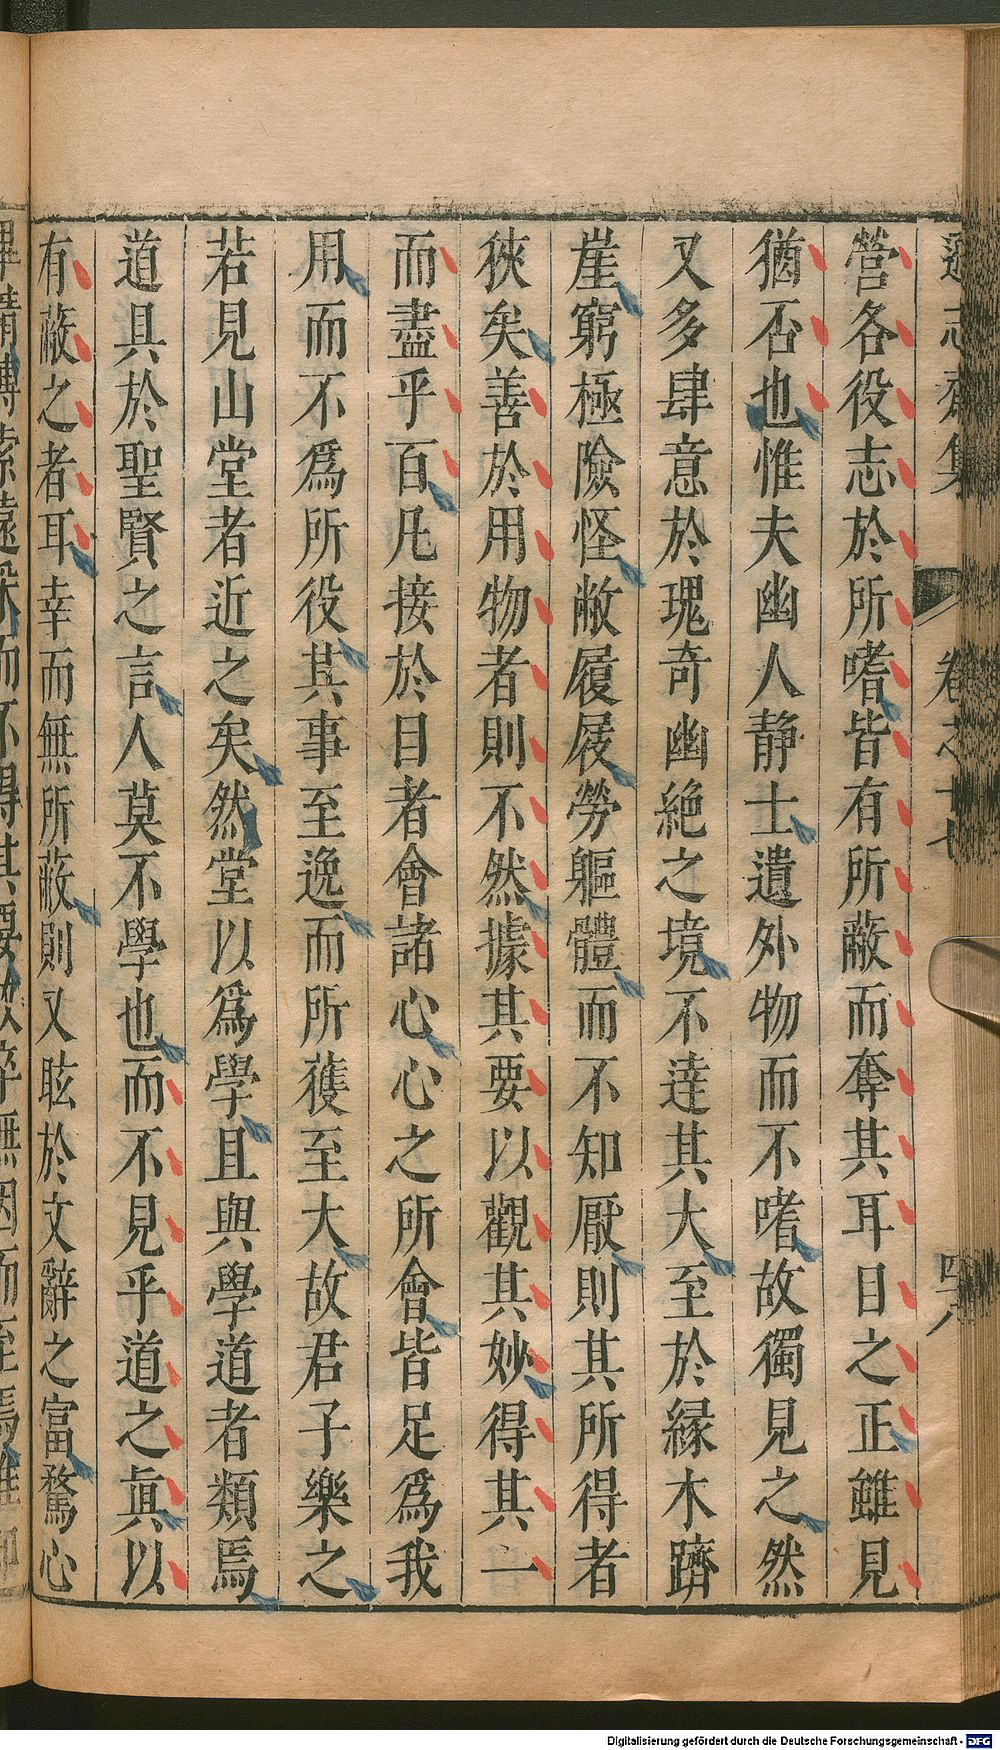 遜志齋集 卷之十七 四十八
營各役志於所嗜皆有所蔽而奪其耳目之正雖見
猶否也惟夫幽人靜士遺外物而不嗜故獨見之然
又多肆意於瑰奇幽絕之境不達其大至於緣木躋
崖窮極險怪敝履屐勞軀體而不知厭則其所得者
狹矣善於用物者則不然據其要以觀其妙得其一
而盡乎百凡接於目者會諸心心之所會皆足爲我
用而不爲所役其事至逸而所獲至大故君子樂之
若見山堂者近之矣然堂以爲學且與學道者類焉
道具於聖賢之言人莫不學也而不見乎道之眞以
有蔽之者耳幸而無所蔽則又眩於文辭之富騖心
Digitalisierung gefördert durch die Deutsche Forschungsgemeinschaft - DFG